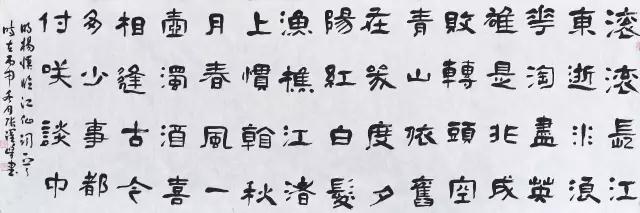 滚滚長江
東逝水浪
華淘盡英
雄是非成
敗轉頭空
青山依舊
在幾度夕
陽紅白髮
漁樵江渚
上慣看秋
月春風一
壺濁酒喜
相逢古今
多少事都
付咲談中
明楊慎臨江仙詞
時在丙申冬月張書